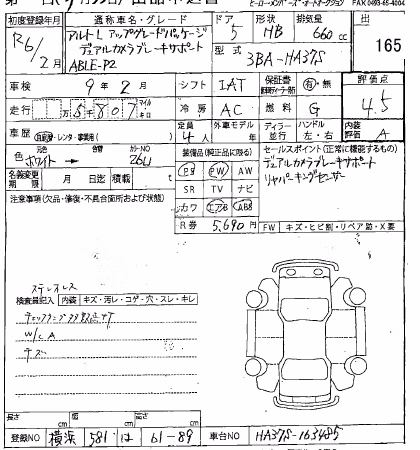 FAX 0493-65-4004
初度登録年月 通称車名・グレード ドア 形状 排気量 出品
R6/2月 アルトL アップグレードパッケージ 5 HB 660cc 165
デュアルカメラブレーキサポート 型式 3BA-HA37S
ABLE-P2
車検 9年2月 シフト IAT 保証書 有・無 評価点
走行 冷房 AC 燃料 G 4.5
車歴 自家用・レンタ・事業用( ) 定員 4人 外車モデル 年 ディラー 並行 ハンドル 左・右 内装評価 A
色 元色 ホワイト → 色替 カラーNO 26U
装備品(純正品に限る) セールスポイント(正常に機能するもの)
名義変更期限 月 日迄 積載 t
PS PW AW デュアルカメラブレーキサポート
SR TV ナビ リヤパーキングセンサー
カワ エアB ABS
注意事項(欠品・修復・不具合箇所および状態)
R券 5,690円 FW キズ・ヒビ割・リペア跡・X要
ステンレス
検査員記入 内装 キズ・汚レ・コゲ・穴・スレ・キレ
W/CA
長さ cm 幅 cm 高さ cm
登録NO 横浜 581 は 61-89 車台NO HA37S-163485